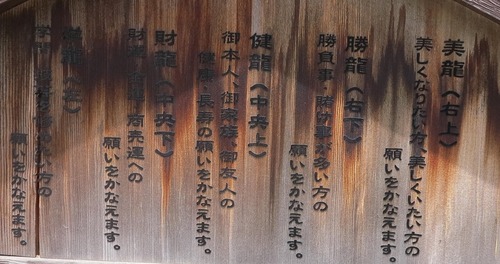 美龍（右上）
美しくなりたい方、美しくいたい方の
願いをかなえます。
勝龍（右下）
勝負事・賭け事が多い方の
願いをかなえます。
健龍（中央上）
御本人、御家族、御友人の
健康・長寿の願いをかなえます。
財龍（中央下）
財 商売運への
願いをかなえます。
龍（左）
学 方の
願いをかなえます。